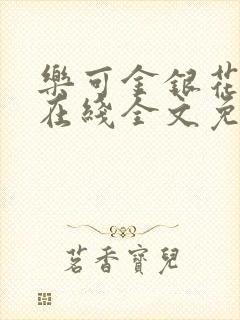 樂可金銀花
在綫全文免
茗香寶兒